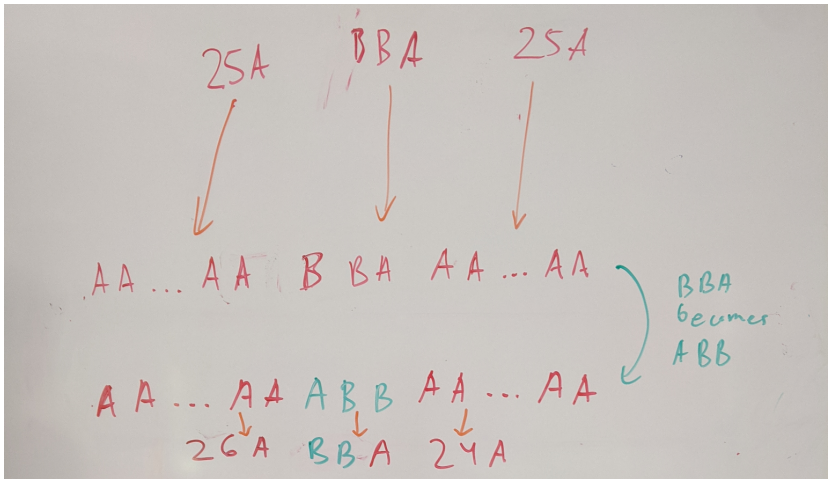 25A BBA 25A
AA ... AA B BA AA ... AA
BBA
becomes
ABB
AA ... AA ABB AA ... AA
26A BBA 24A